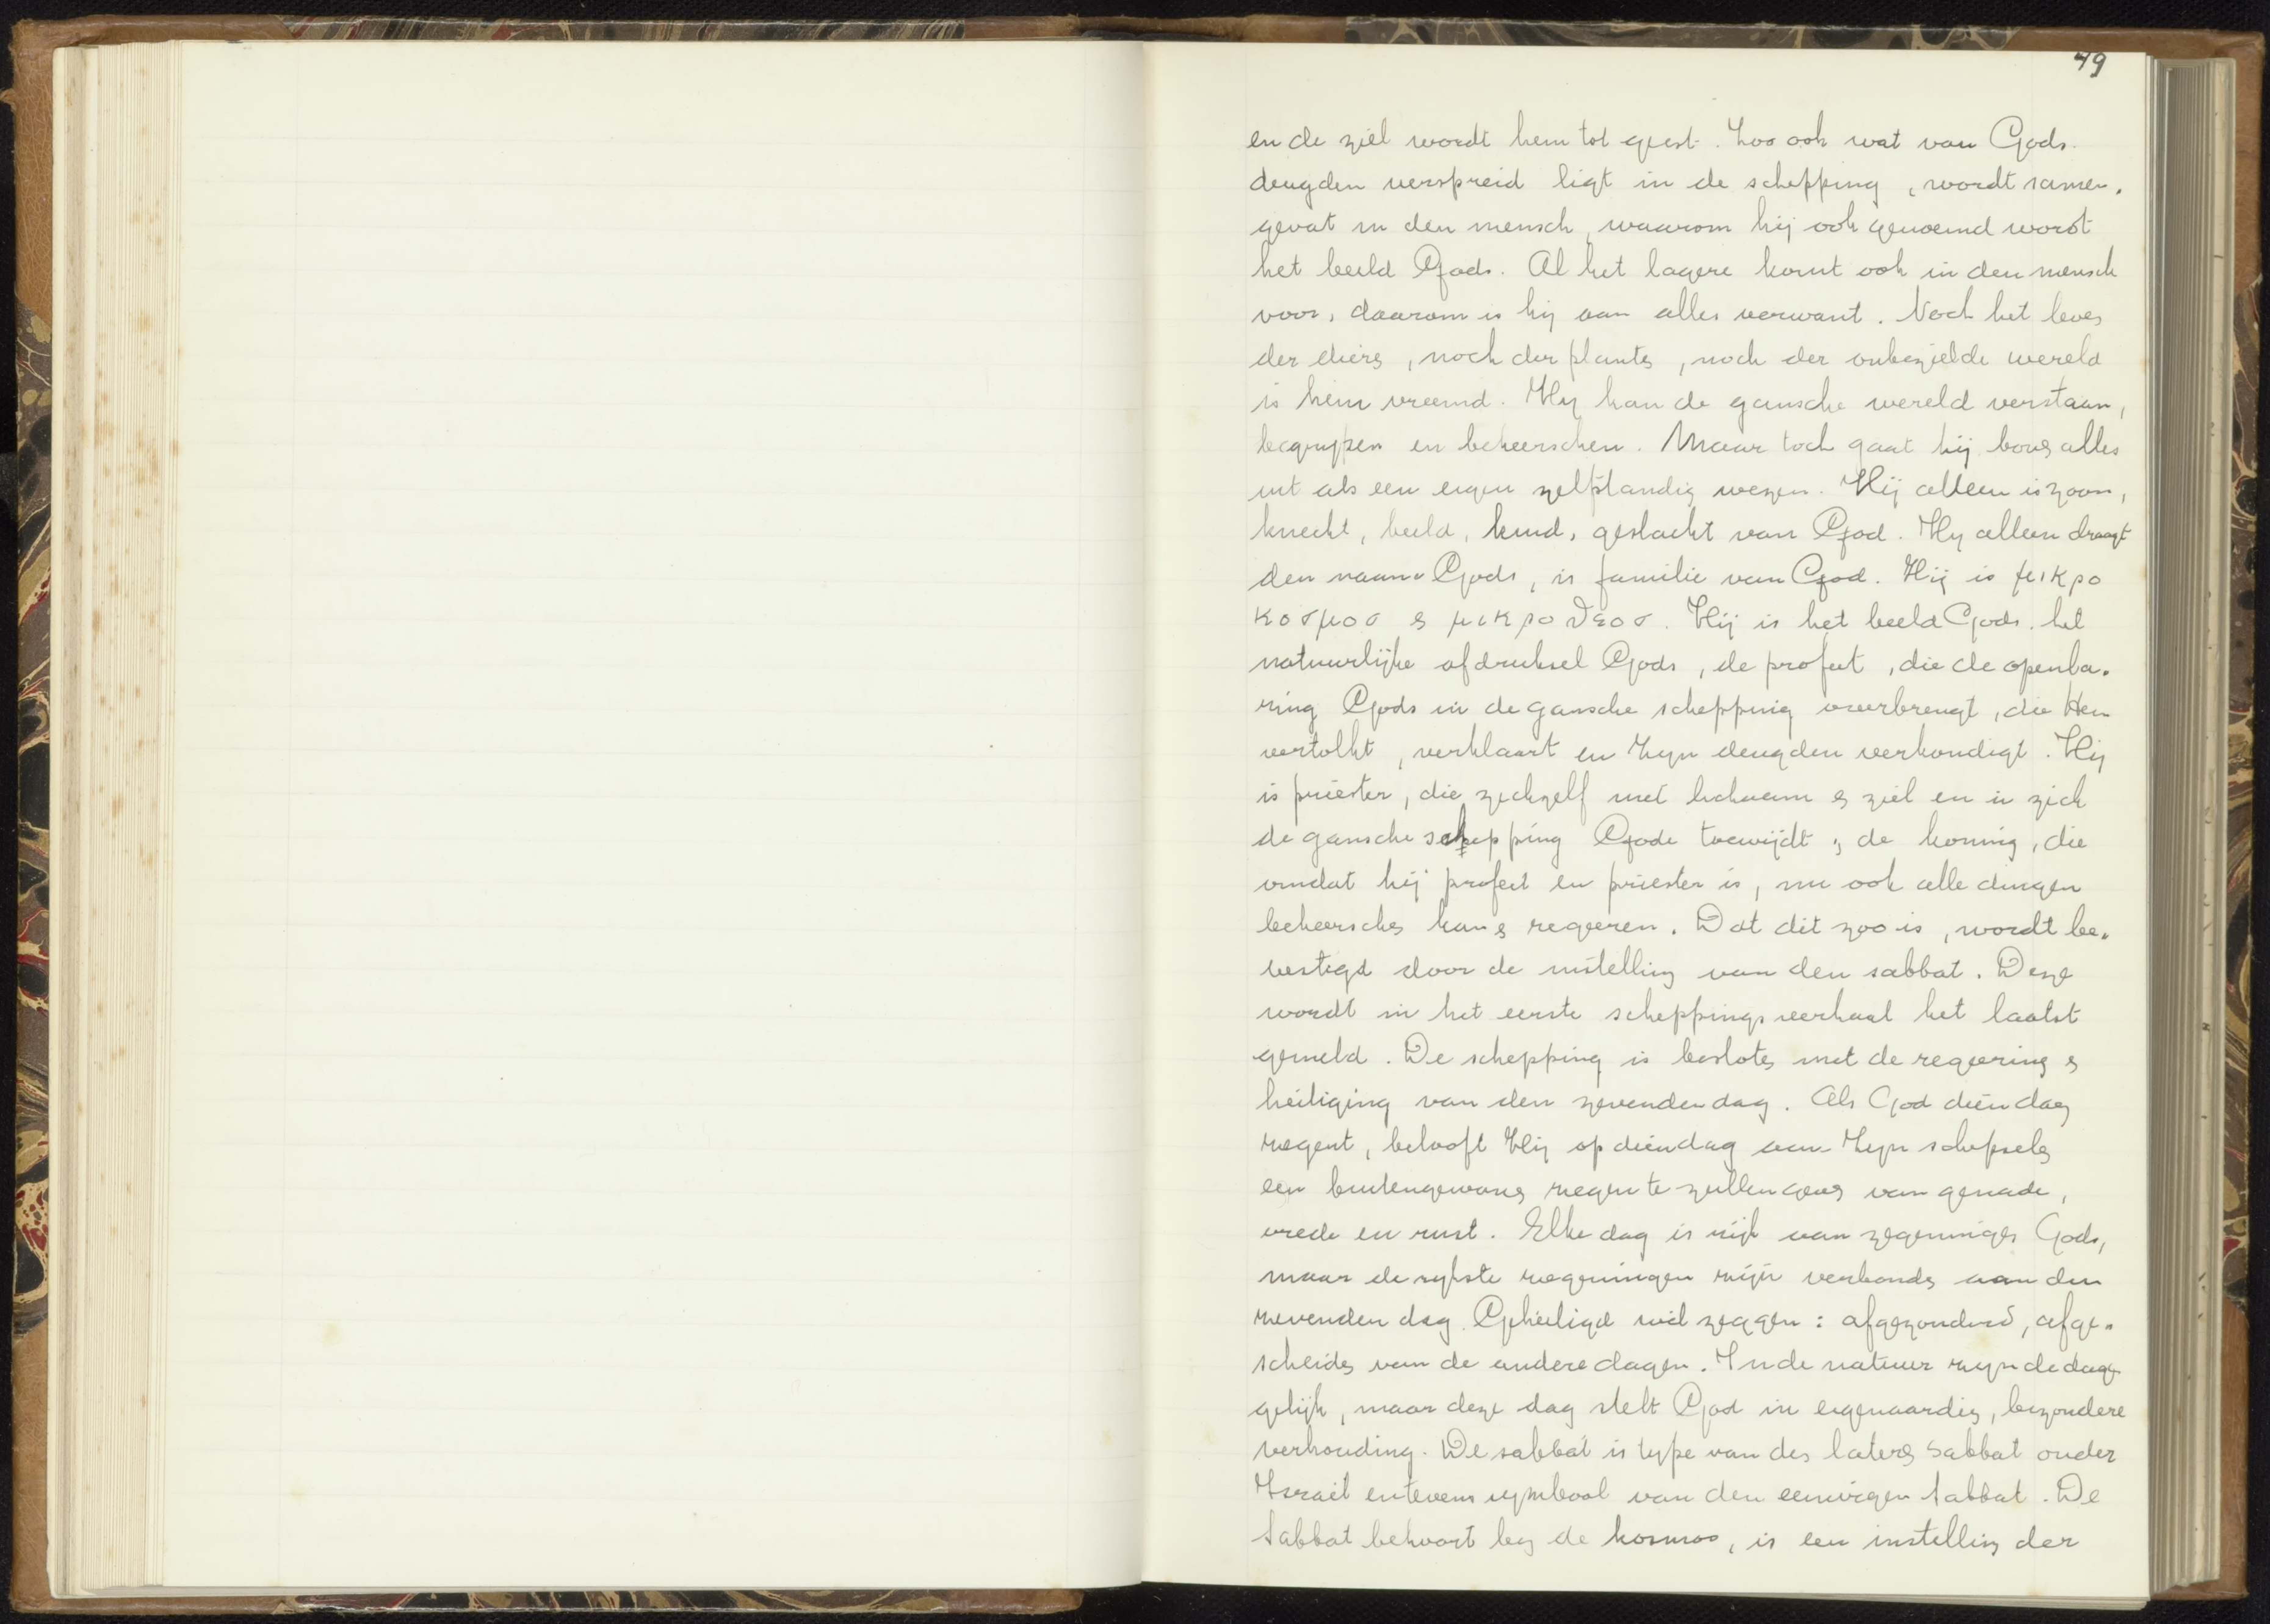 49
en de ziel wordt hem tot geest. Zoo ook wat van Gods
deugden verspreid ligt in de schepping, wordt samen-
gevat in den mensch, waarom hij ook genoemd wordt
het beeld Gods. Al het lagere komt ook in den mensch
voor, daarom is hij aan alles verwant. Noch het leven
der dieren, noch der planten, noch der onbezielde wereld
is hem vreemd. Hij kan de gansche wereld verstaan,
begrijpen en beheerschen. Maar toch gaat hij boven alles
uit als een eigen zelfstandig wezen. Hij alleen is zoon,
knecht, beeld, kind, geslacht van God. Hij alleen draagt
den naam Gods, is familie van God. Hij is μικρο
κοσμοσ en μικροθεοσ. Hij is het beeld Gods. het
natuurlijke afdruksel Gods, de profeet, die de openba-
ring Gods in de gansche schepping overbrengt, die Hem
vertolkt, verklaart en Zijn deugden verkondigt. Hij
is priester, die zichzelf met lichaam en ziel en in zich
de gansche schepping Gode toewijdt, de koning, die
omdat hij profeet en priester is, nu ook alle dingen
beheerschen kan en regeeren. Dat dit zoo is, wordt be-
vestigd door de instelling van den sabbat. Deze
wordt in het eerste scheppingsverhaal het laatst
gemeld. De schepping is besloten met de zegening en
heiliging van den zevenden dag. Als God dien dag
zegent, belooft Hij op dien dag aan Zijn schepselen
een buitengewonen zegen te zullen geven van genade,
vrede en rust. Elke dag is rijk van zegeningen Gods,
maar de rijkste zegeningen zijn verbonden aan den
zevenden dag. Geheiligd wil zeggen: afgezonderd, afge-
scheiden van de andere dagen. In de natuur zijn de dagen
gelijk, maar deze dag stelt God in eigenaardig, bizondere
verhouding. De sabbat is type van den lateren Sabbat onder
Israel en tevens symbool van den eeuwigen Sabbat. De
Sabbat behoort bij de kosmos, is een instelling der